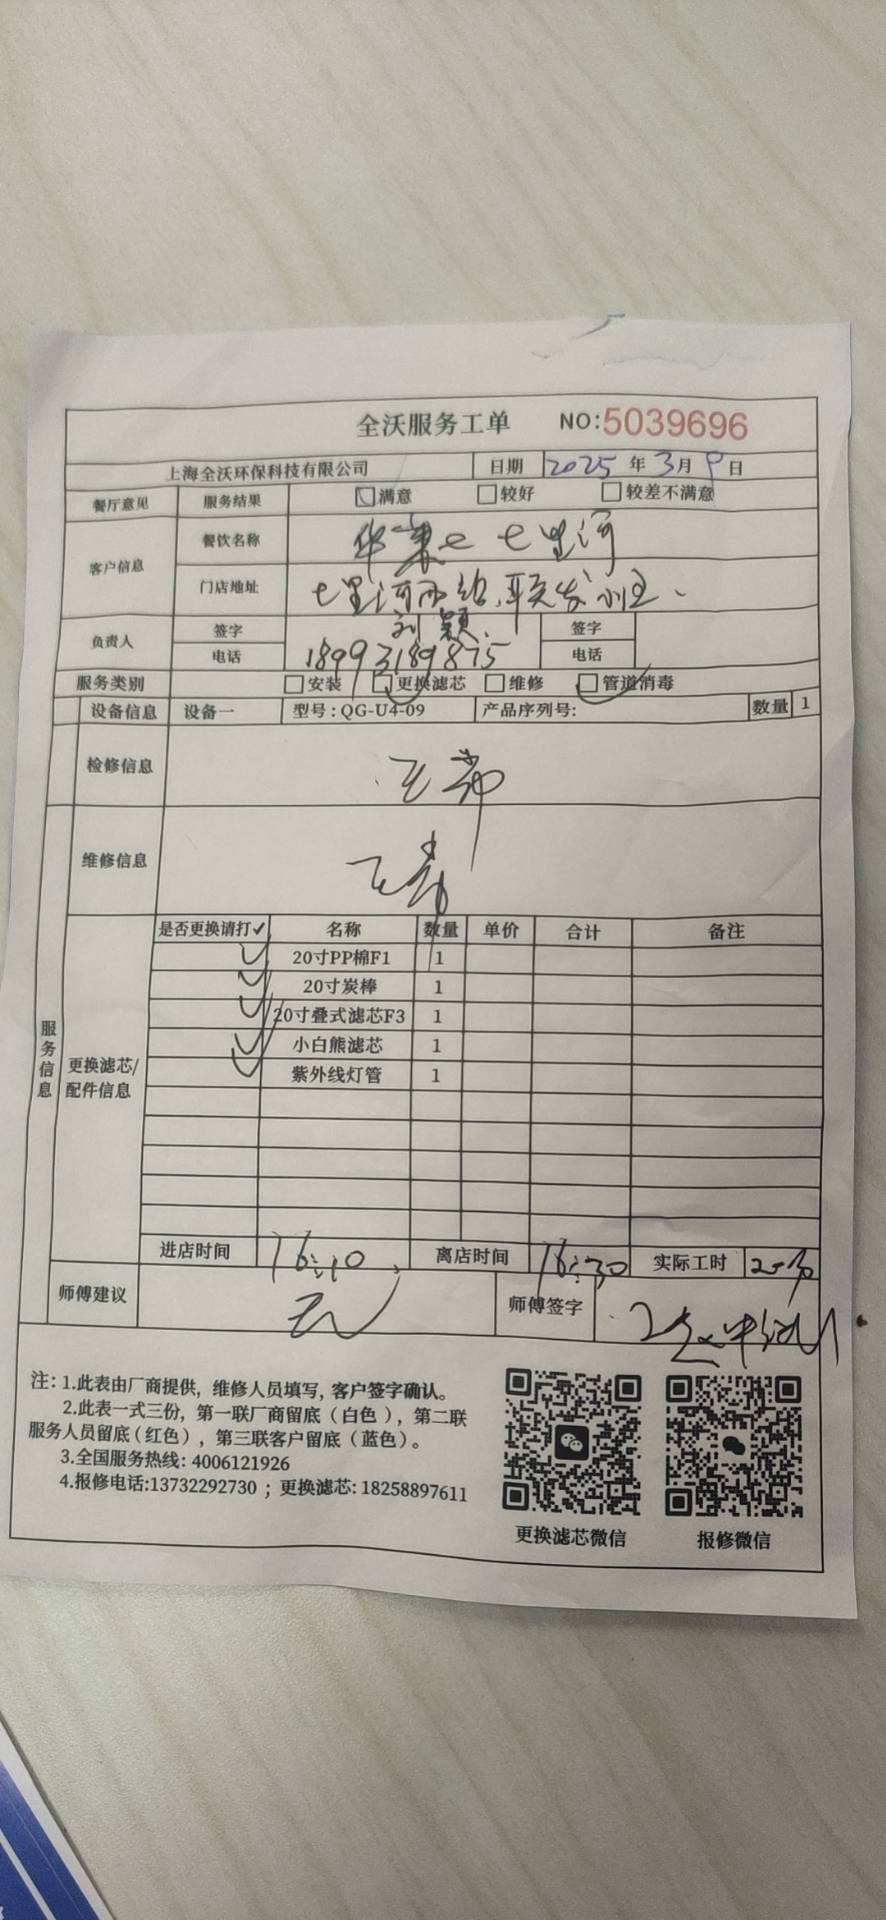 全沃服务工单 NO:5039696
上海全沃环保科技有限公司 日期 2025 年 3 月 9 日
餐厅意见 服务结果 满意 较好 较差不满意
客户信息 餐饮名称 七里河
门店地址 七里河西站
负责人 签字 刘颖 签字
电话 18993189875 电话
服务类别 安装 更换滤芯 维修 管道消毒
设备信息 设备一 型号:QG-U4-09 产品序列号: 数量 1
检修信息 正常
维修信息
服务信息
更换滤芯/配件信息
是否更换请打✓ 名称 数量 单价 合计 备注
✓ 20寸PP棉F1 1
✓ 20寸炭棒 1
✓ 20寸叠式滤芯F3 1
✓ 小白熊滤芯 1
✓ 紫外线灯管 1
进店时间 16:10 离店时间 16:30 实际工时 20分
师傅建议 无 师傅签字
注: 1.此表由厂商提供, 维修人员填写, 客户签字确认。
2.此表一式三份, 第一联厂商留底(白色), 第二联
服务人员留底(红色), 第三联客户留底(蓝色)。
3.全国服务热线: 4006121926
4.报修电话:13732292730 ; 更换滤芯: 18258897611
更换滤芯微信 报修微信